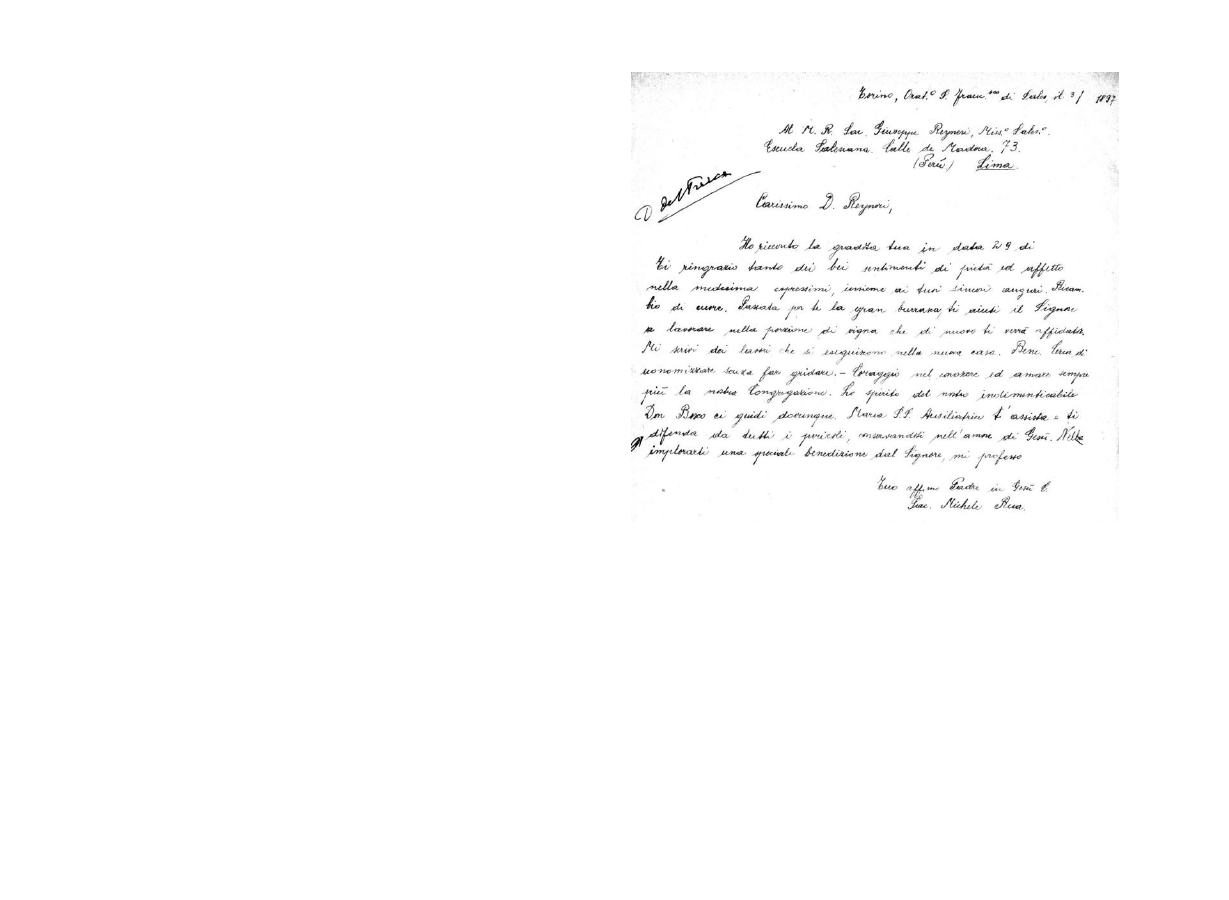 Torino, Orat.º S. Franc.sco di Sales, il 3/ 1897
Al M. R. Sac. Giuseppe Reyneri, Miss.º Sales.º
Escuela Salesiana. Calle de Madera. 73.
(Perú) Lima.
Carissimo D. Reyneri,
Ho ricevuto la gradita tua in data 29 di
Ti ringrazio tanto dei bei sentimenti di pietà ed affetto
nella medesima espressimi, insieme ai tuoi sinceri auguri. Ricam-
bio di cuore. Passata per te la gran burrasca, ti aiuti il Signore
a lavorare nella porzione di vigna che di nuovo ti verrà affidata.
Mi scrivi dei lavori che si eseguiscono nella nuova casa. Bene. Cerca di
economizzare senza far gridare. - Coraggio nel conoscere ed amare sempre
più la nostra Congregazione. Lo spirito del nostro indimenticabile
Don Bosco ci guidi dovunque. Maria S.S. Ausiliatrice t'assista e ti
difenda da tutti i pericoli, conservandoti nell'amore di Gesù. Nello
implorarti una speciale benedizione dal Signore, mi professo
Tuo aff.mo Padre in Gesù C.
Sac. Michele Rua.